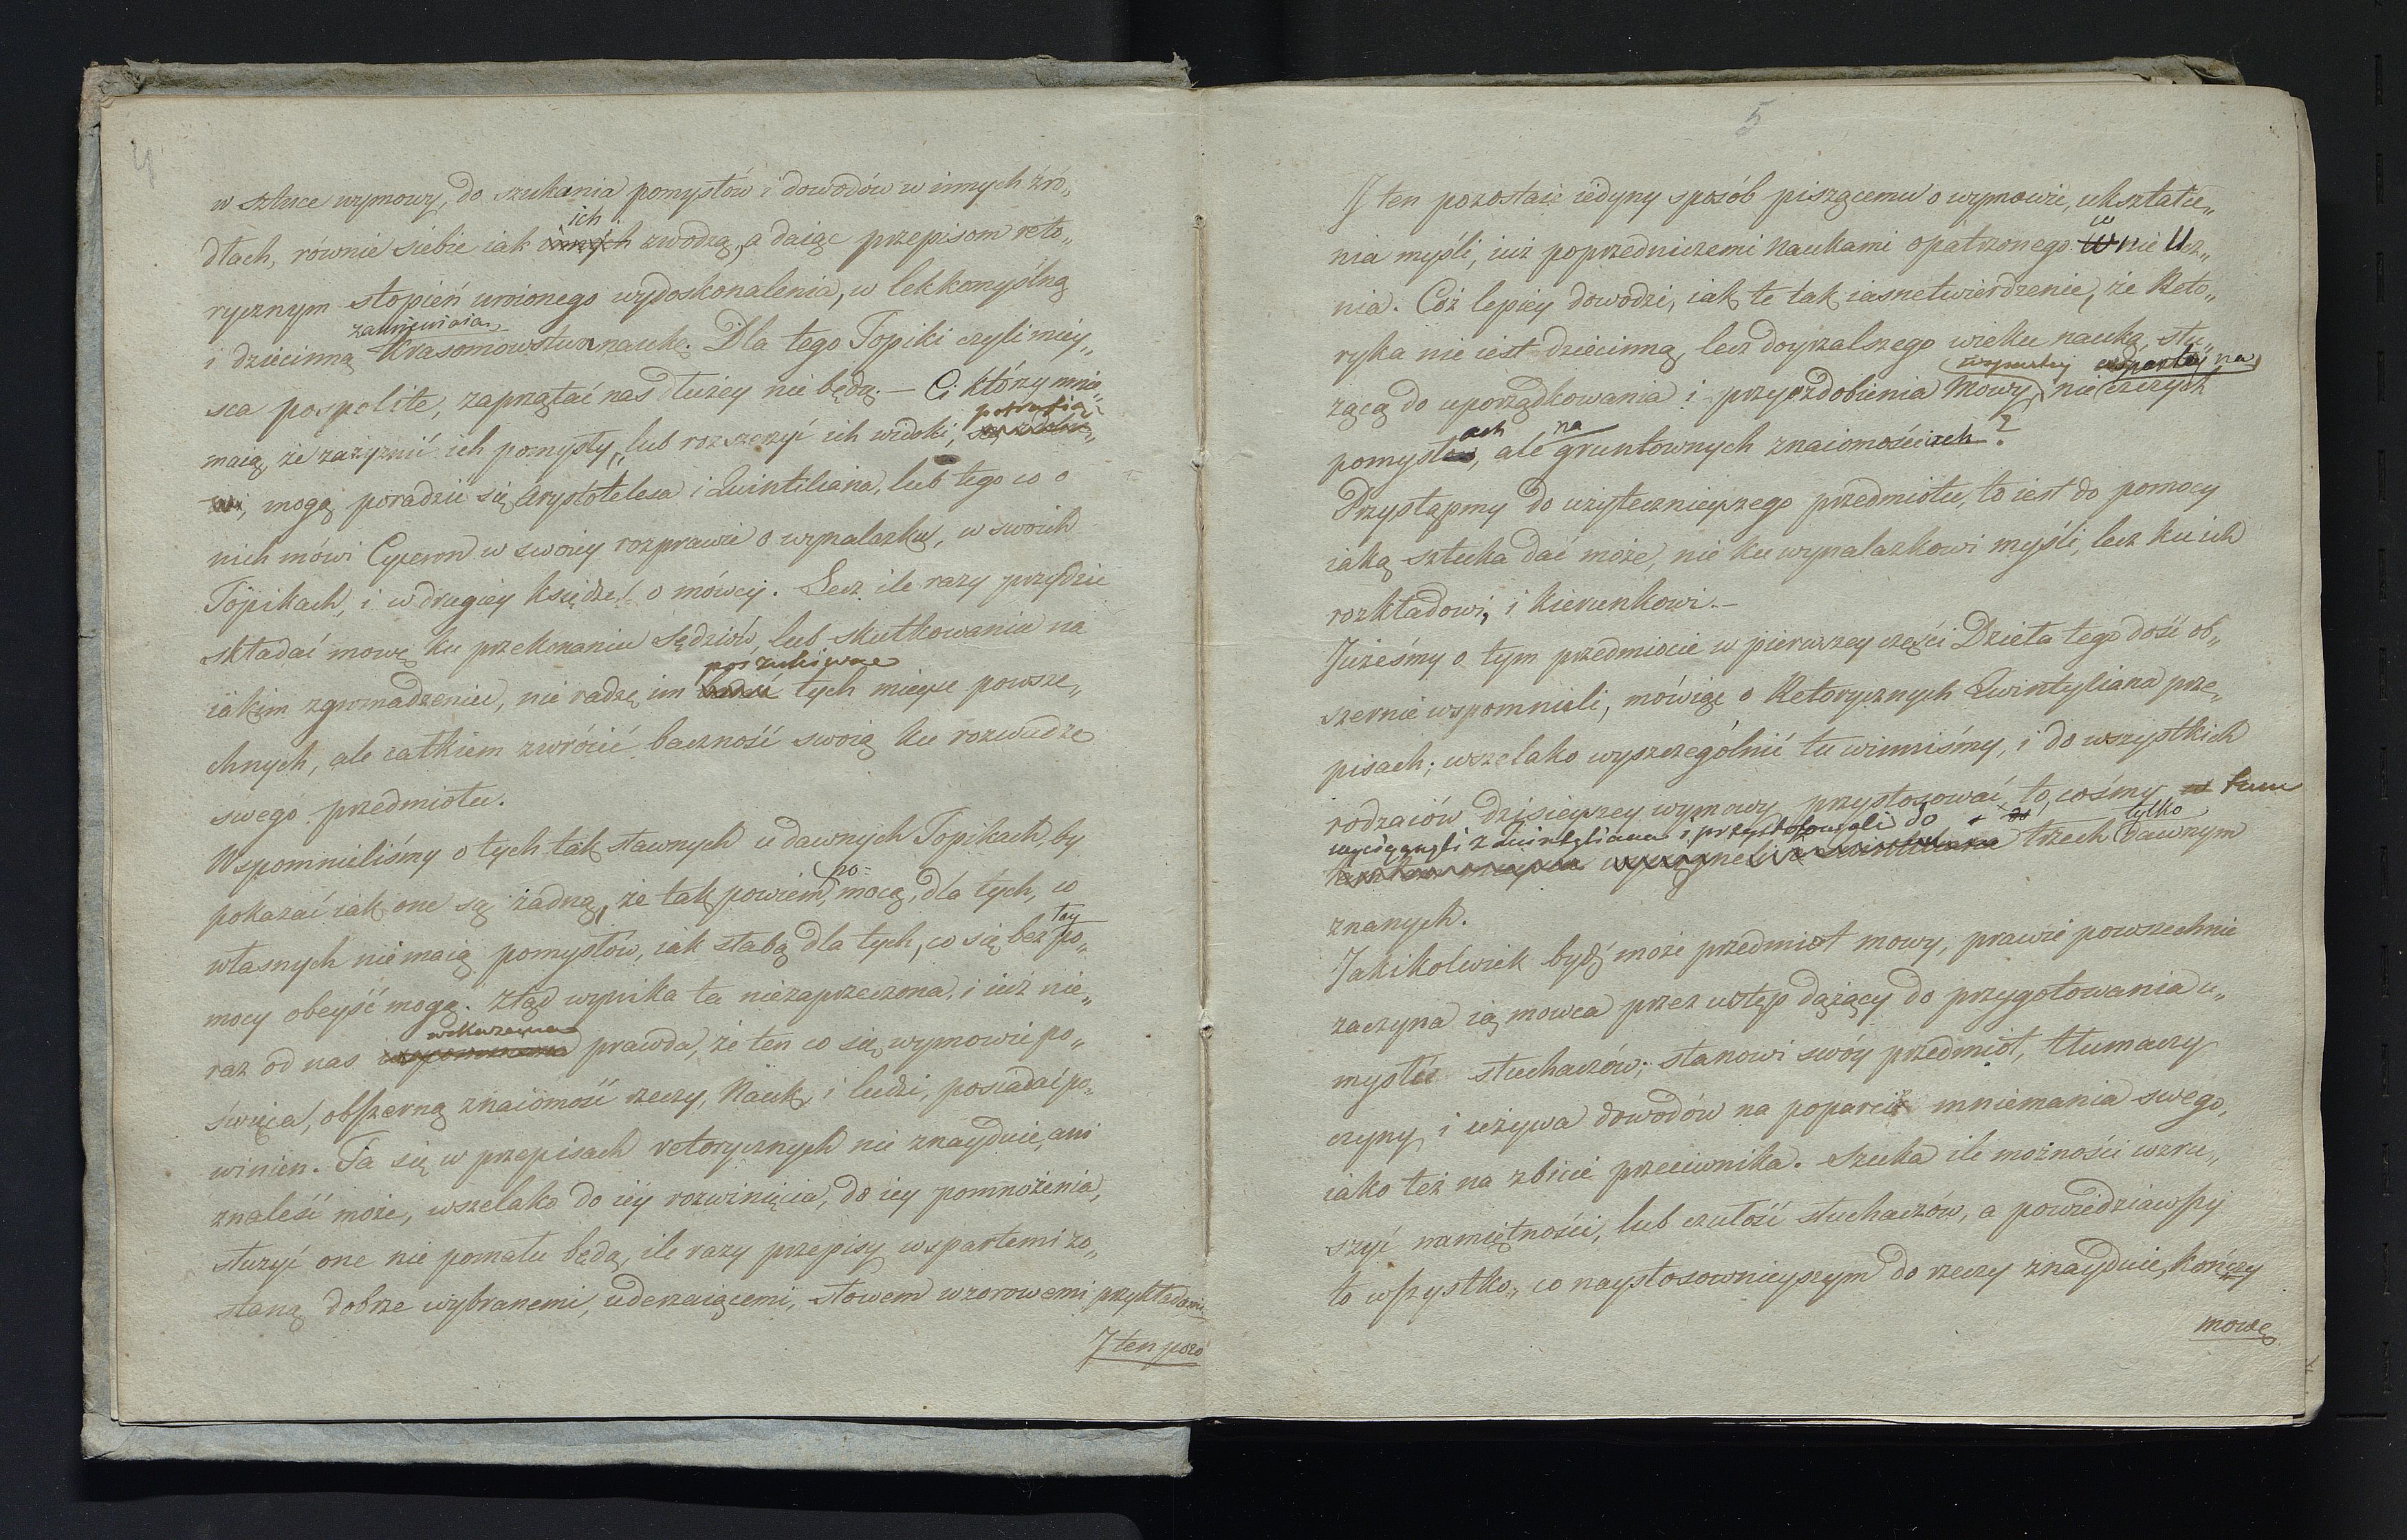 4
w sztuce wymowy, do szukania pomysłów i dowodów w innych źró„
ich
dłach, równie siebie iak innych zwodzą, a daiąc przepisom reto„
rycznym stopień urojonego wydoskonalenia, w lekkomyślną
zamieniaią
i dziecinną Krasomowstwa naukę. Dla tego Topiki czyli miey„
sca pospolite, zaprzątać nas dłużey nie będą. — Ci którzy mnie„
potrafią
maią, że zażyznić ich pomysły, lub rozszerzyć ich widoki,
mogą poradzić się Arystotelesa i Quintiliana, lub tego co o
nich mówi Cyceron w swoiey rozprawie o wynalazku, w swoich
Topikach, i w drugiey księdze o mówcy. Lecz ile razy przydzie
składać mowę ku przekonaniu Sędziów, lub skutkowaniu na
poszukiwać
iakim zgromadzeniu, nie radzę im badać tych mieysc powsze„
chnych, ale całkiem zwrócić baczność swoią ku rozwadze
swego przedmiotu.
Wspomnieliśmy o tych tak sławnych u dawnych Topikach, by
po=
pokazać iak one są żadną, że tak powiem, mocą, dla tych, co
własnych nie maią pomysłów, iak słabą dla tych, co się bez tey po„
mocy obeyść mogą. Ztąd wynika ta niezaprzeczona, i iuż nie„
wskazana
raz od nas prawda, że ten co się wymowie po„
święca, obszerną znaiomość rzeczy, Nauk, i ludzi, posiadać po„
winien. Ta się w przepisach retorycznych nie znayduie, ani
znaleść może, wszelako do iéy rozwinięcia, do iey pomnożenia,
służyć one nie pomału będą, ile razy przepisy wspartemi zo„
staną dobrze wybranemi, uderzaiącemi, słowem wzorowemi przykładami
I ten pozo
5
I ten pozostaie iedyny sposób piszącemu o wymowie, ukształce„
nia myśli, iuż poprzedniczemi Naukami opatrzonego Ucz„
nia. Cóż lepiey dowodzi, iak te tak iasne twierdzenie, że Reto„
ryka nie iest dziecinną, lecz doyrzalszego wieku nauką, słu„
wspartey na
żącą do uporządkowania i przyozdobienia Mowy, nie czczych
ach na
pomysłów, ale gruntownych znaiomościach?
Przystąpmy do użytecznieyszego przedmiotu, to iest do pomocy
iaką sztuka dać może, nie ku wynalazkowi myśli, lecz ku ich
rozkładowi, i kierunkowi. —
Jużeśmy o tym przedmiocie w pierwszey części Dzieła tego dość ob„
szernie wspomnieli, mówiąc o Retorycznych Quintyliana prze„
pisach; wszelako wyszczególnić tu winniśmy, i do wszystkich
rodzaiów dzisieyszey wymowy przystosować to, cośmy tam
wyciągnęli z Quintyliana i przystosowali do tylko
wyciągneli z Quintiliana trzech dawnym
znanych.
Jakikolwiek bydź może przedmiot mowy, prawie powszechnie
zaczyna ią mowca przez wstęp dążący do przygotowania u„
mysłu słuchaczów; stanowi swóy przedmiot, tłumaczy
czyny i używa dowodów na poparcie mniemania swego,
iako też na zbicie przeciwnika. Szuka ile możności wzru„
szyć namiętności, lub czułość słuchaczów, a powiedziawszy
to wszystko, co naystosownieyszym do rzeczy znayduie, kończy
mowę